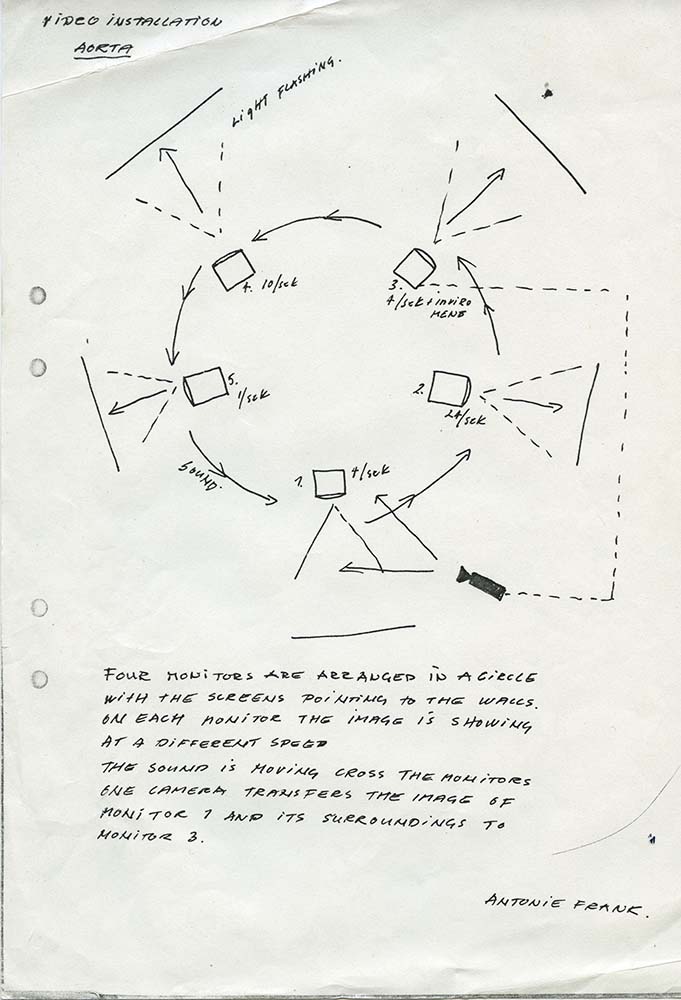 VIDEO INSTALLATION
AORTA
LIGHT FLASHING.
4. 10/sek
3.
4/sek + inviro
MENE
5.
1/sek
2.
24/sek
SOUND.
1. 4/sek
FOUR MONITORS ARE ARRANGED IN A CIRCLE
WITH THE SCREENS POINTING TO THE WALLS.
ON EACH MONITOR THE IMAGE IS SHOWING
AT A DIFFERENT SPEED
THE SOUND IS MOVING CROSS THE MONITORS
ONE CAMERA TRANSFERS THE IMAGE OF
MONITOR 1 AND ITS SURROUNDINGS TO
MONITOR 3.
ANTONIE FRANK.